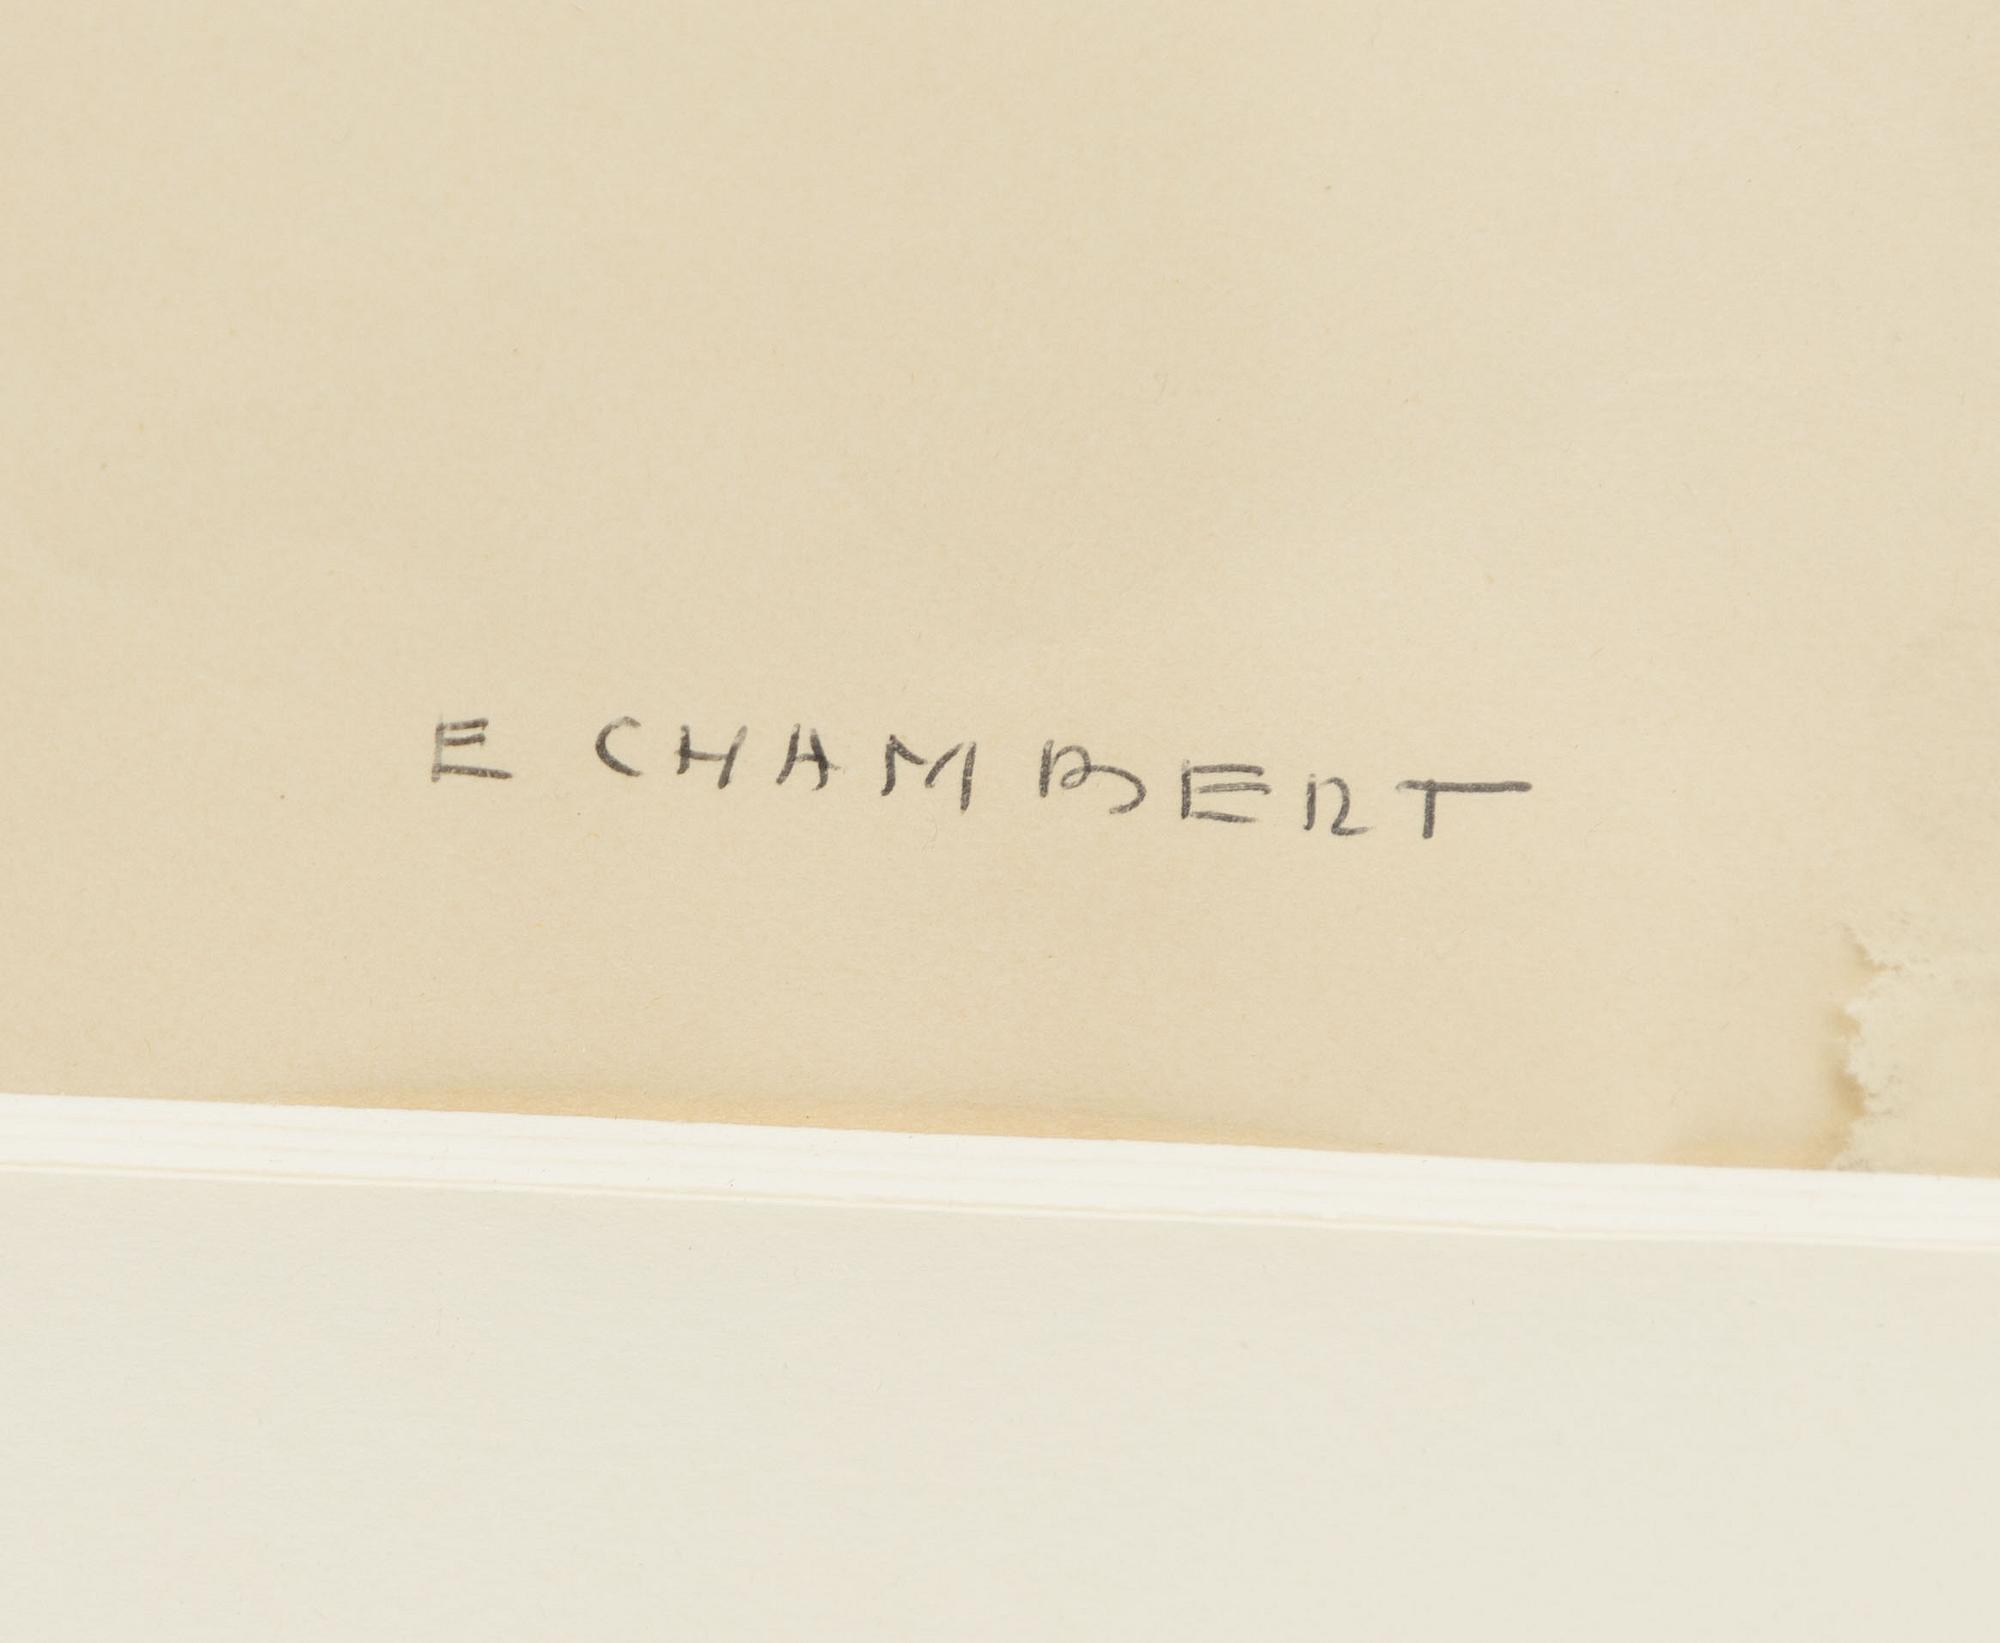 E CHAMBERT